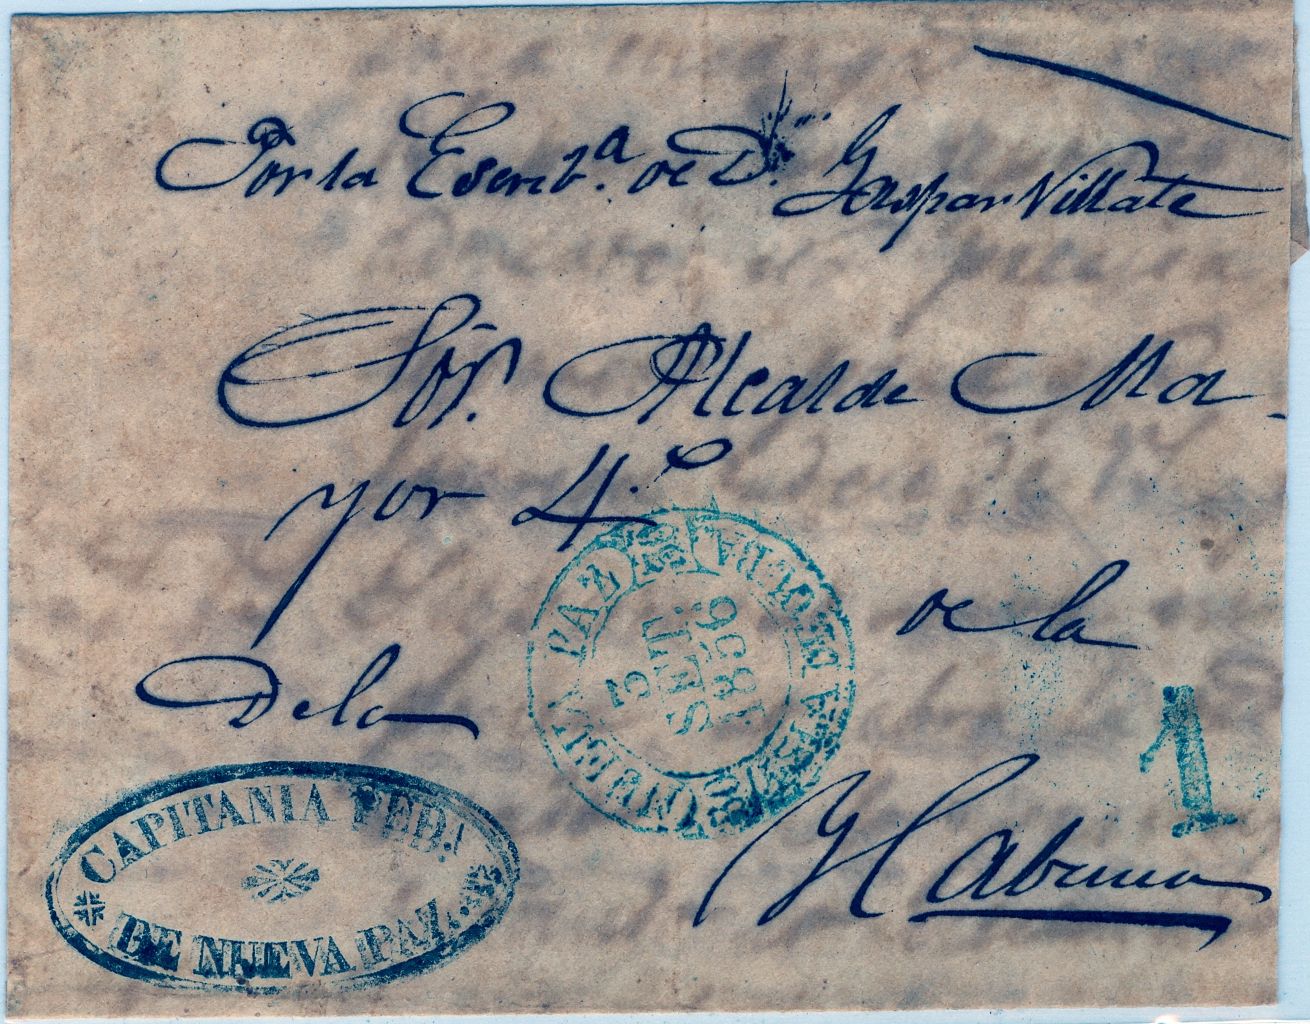 Por la Escrib.ª de D.ⁿ Gaspar Villate
Sör. Alcalde Ma-
yor 4.º
de la
De la
Habana
NUEVA PAZ
5
SET.
1856
ISLA DE CUBA
1
CAPITANIA PED.ᴬ
DE NUEVA PAZ.